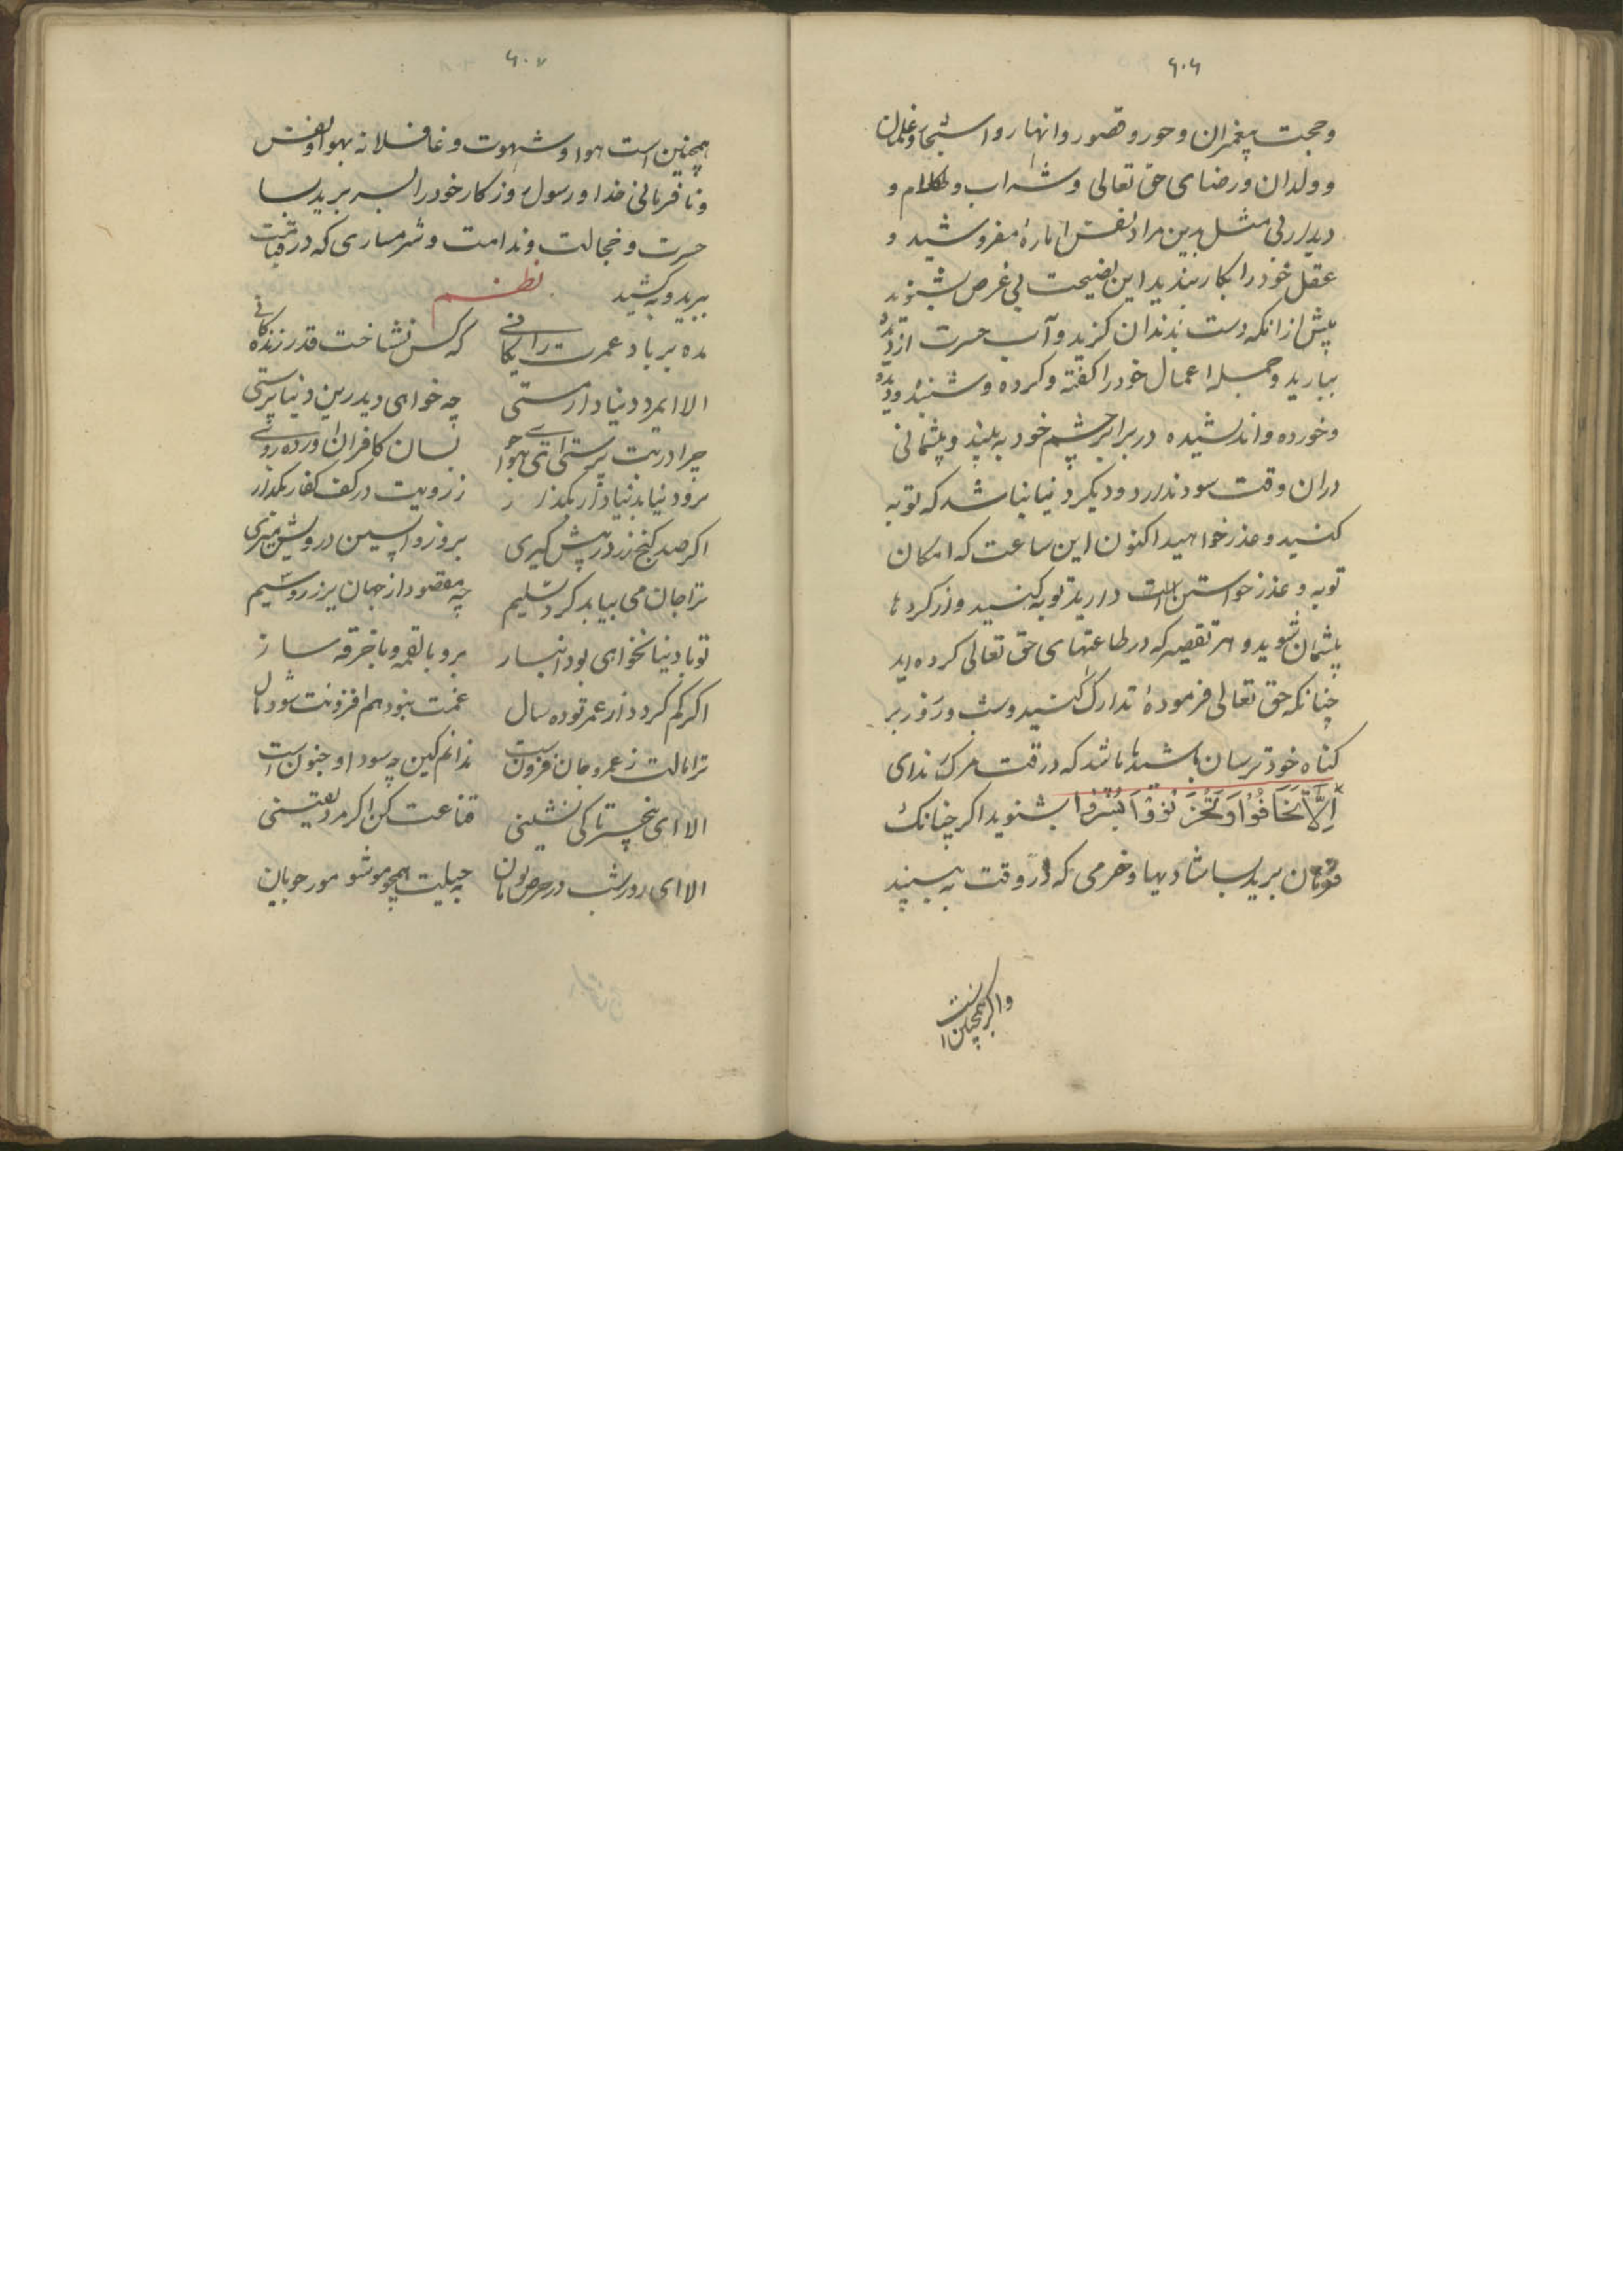 ۶۰۶
وحجت پیغمبران و حور و قصور و انهار و اشجار و غلمان
و ولدان و رضای حق تعالی و شراب و کلام و
دیدار بی مثل بدین مراد نفس اماره مفروشید و
عقل خود را بکار بندید این نصیحت بی غرض بشنوید
پیش ازانکه دست بدندان کزید و آب حسرت از دیده
ببارید و جمله اعمال خود را کفته و کرده و شنیده و دیده
و خورده و اندیشیده در برابر چشم خود به بینید و پشیمانی
دران وقت سود ندارد و دیکر دنیا نباشد که توبه
کنید و عذر خواهید اکنون این ساعت که امکان
توبه و عذر خواستن است دارید توبه کنید و از کردها
پشیمان شوید و هر تقصیر که در طاعتهای حق تعالی کرده اید
چنانکه حق تعالی فرموده تدارک کنید و شب و روز بر
کناه خود ترسان باشید تا باشد که در وقت مرک ندای
اَلَّا تَخَافُوْا وَ تَحْزَنُوْ وَ اَبْشِرُوا بشنوید اکر چنانک
بریدبسا شادیها و خرمی که در وقت به بینید
و اکر همچنین است
۶۰۷
همچنین است هوا و شهوت و غافلانه بهوا و نفس
و نافرمانی خدا و رسول روزکار خود را بسر برید بسا
حسرت و خجالت و ندامت و شرمساری که در قیامت
ببرید و بکشید نظم
مده بر باد عمرت رایکانی که کس نشناخت قدر زندکانی
الا ایمرد دنیادار مستی چه خواهی دید زین دنیا پرستی
چرا در بت پرستی ای هواجوی بسان کافران آورده روئی
برو دنیا بدنیادار بکذار ز رویت در کف کفار بکذار
اکر صد کنج زر در پیش کیری بروز واپسین درویش میری
ترا جان می بباید کرد تسلیم چه مقصود از جهان پر زر و سیم
تو با دنیا نخواهی بود انباز برو با لقمه و با خرقه ساز
اکر کم کردد از عمر تو ده سال غمت نبود هم افزونت شود مال
ترا مالت ز عمر و جان فزون است ندانم کین چه سودا و جنون است
الا ای بیخبر تا کی نشینی قناعت کن اکر مرد یقینی
الا ای روز و شب در حرص پویان بحیلت همچو مور جویان